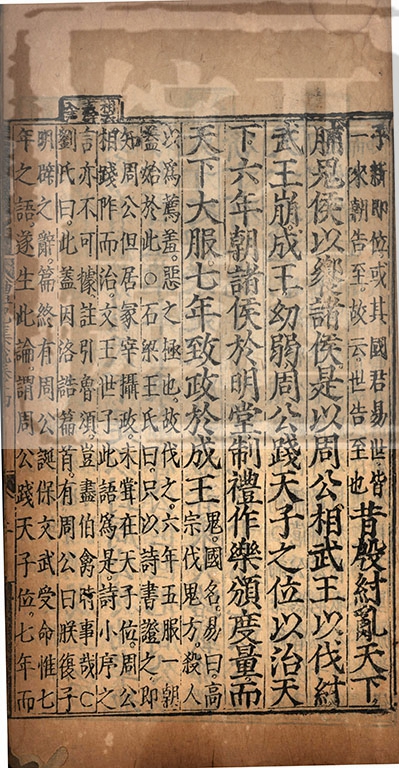 子新即位或其國君易世皆
一來朝告至故云世告至也
昔殷紂亂天下
脯鬼侯以饗諸侯是以周公相武王以伐紂
武王崩成王幼弱周公踐天子之位以治天
下六年朝諸侯於明堂制禮作樂頒度量而
天下大服七年致政於成王
鬼國名易曰高
宗伐鬼方殺人
以為薦羞惡之極也故伐之六年五服一朝
蓋始於此○石梁王氏曰只以詩書證之即
知周公但居冢宰攝政未嘗在天子位周公
相踐阼而治文王世子此語為是詩小序之
言亦不可據註引魯頌豈盡伯禽時事哉○
劉氏曰此蓋因洛誥篇首有周公曰朕復子
明辟之辭篇終有周公誕保文武受命惟七
年之語遂生此論謂周公踐天子位七年而